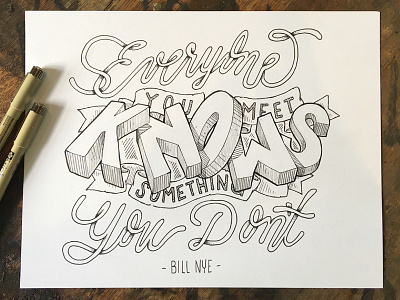 Everyone
YOU MEET
KNOWS
SOMETHING
You Don't
- BILL NYE -